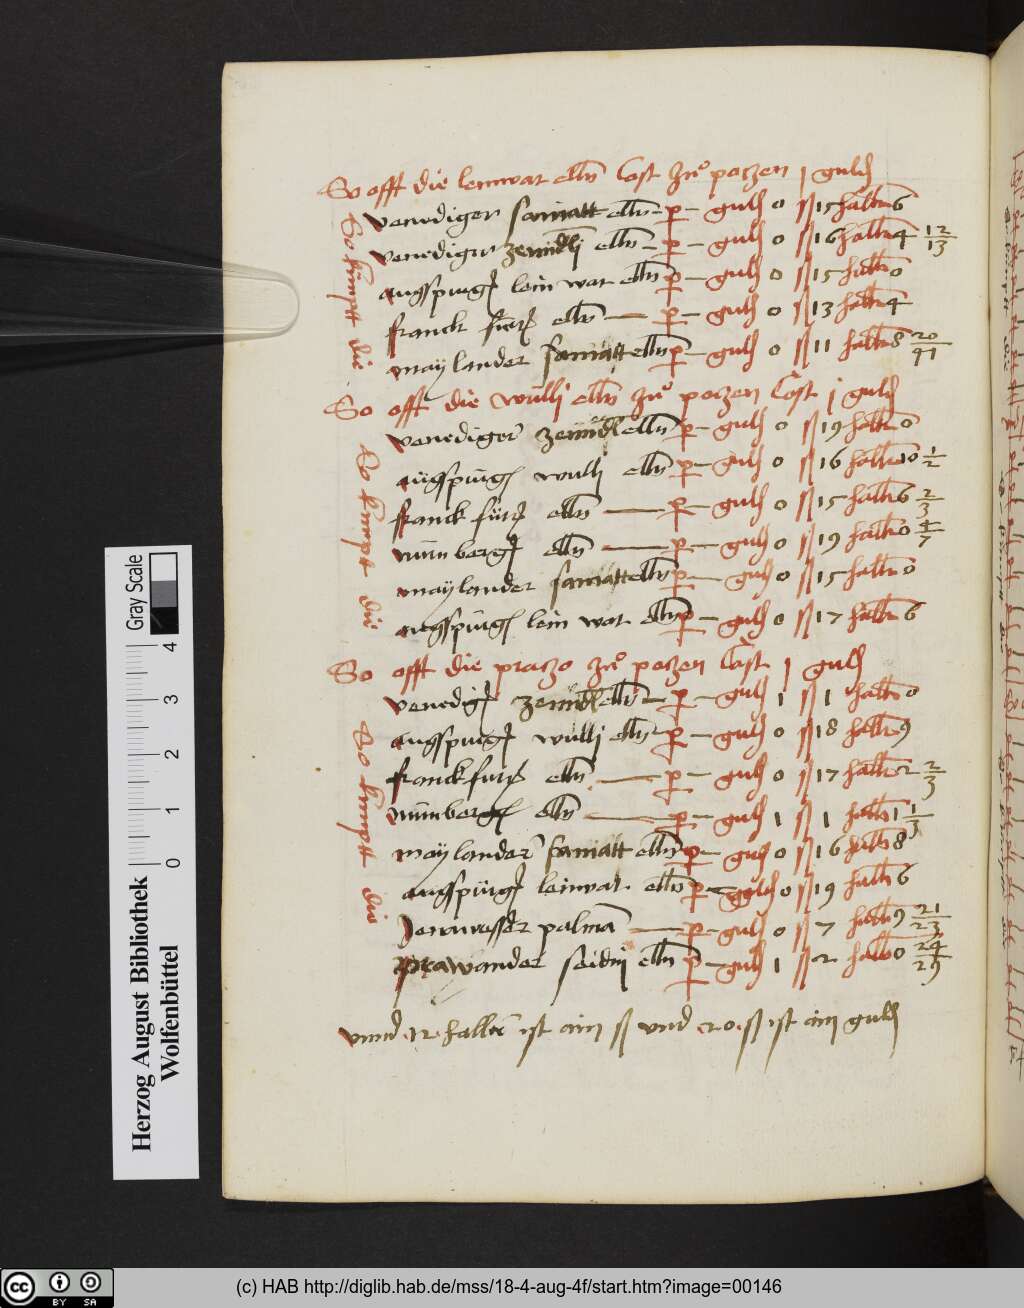 So offt die leinwat elln cost zuo poczen 1 guld
So kumptt die
venediger samatt elln — p — guld 0 ß 15 haller 6
venediger zemidli elln — p — guld 0 ß 16 haller 4 12/13
augspurg lein wat elln p — guld 0 ß 15 haller 0
franck furt elln — p — guld 0 ß 13 haller 4
maylander samatt elln p — guld 0 ß 11 haller 8 20/41
So offt die wulli elln zuo poczen cost 1 guld
So kumpt die
venediger zemidl elln p — guld 0 ß 19 haller 0
augspurg wulli elln p — guld 0 ß 16 haller 10 1/2
franck furt elln — p — guld 0 ß 15 haller 6 2/3
nurnberg elln — p — guld 0 ß 19 haller 0 4/7
maylander samatt elln p — guld 0 ß 15 haller 0
augspurg lein wat elln p — guld 0 ß 17 haller 6
So offt die praczo zuo poczen cost 1 guld
So kumptt die
venedig zemidl elln — p — guld 1 ß 1 haller 0
augspurg wulli elln p — guld 0 ß 18 haller 9
franckfurt elln — p — guld 0 ß 17 haller 2 2/3
nurnberg elln — p — guld 1 ß 1 haller 1 1/3
maylander samatt elln p — guld 0 ß 16 haller 8
augspurg leinwat elln p — guld 0 ß 19 haller 6
Jenuesser palma — p — guld 0 ß 7 haller 9 21/23
seidin elln p — guld 1 ß 2 haller 0 24/29
vnnd 12 haller ist ain ß vnd 20 ß ist ain guld
Herzog August Bibliothek
Wolfenbüttel
Gray Scale
0 1 2 3 4
cc BY SA
(c) HAB http://diglib.hab.de/mss/18-4-aug-4f/start.htm?image=00146